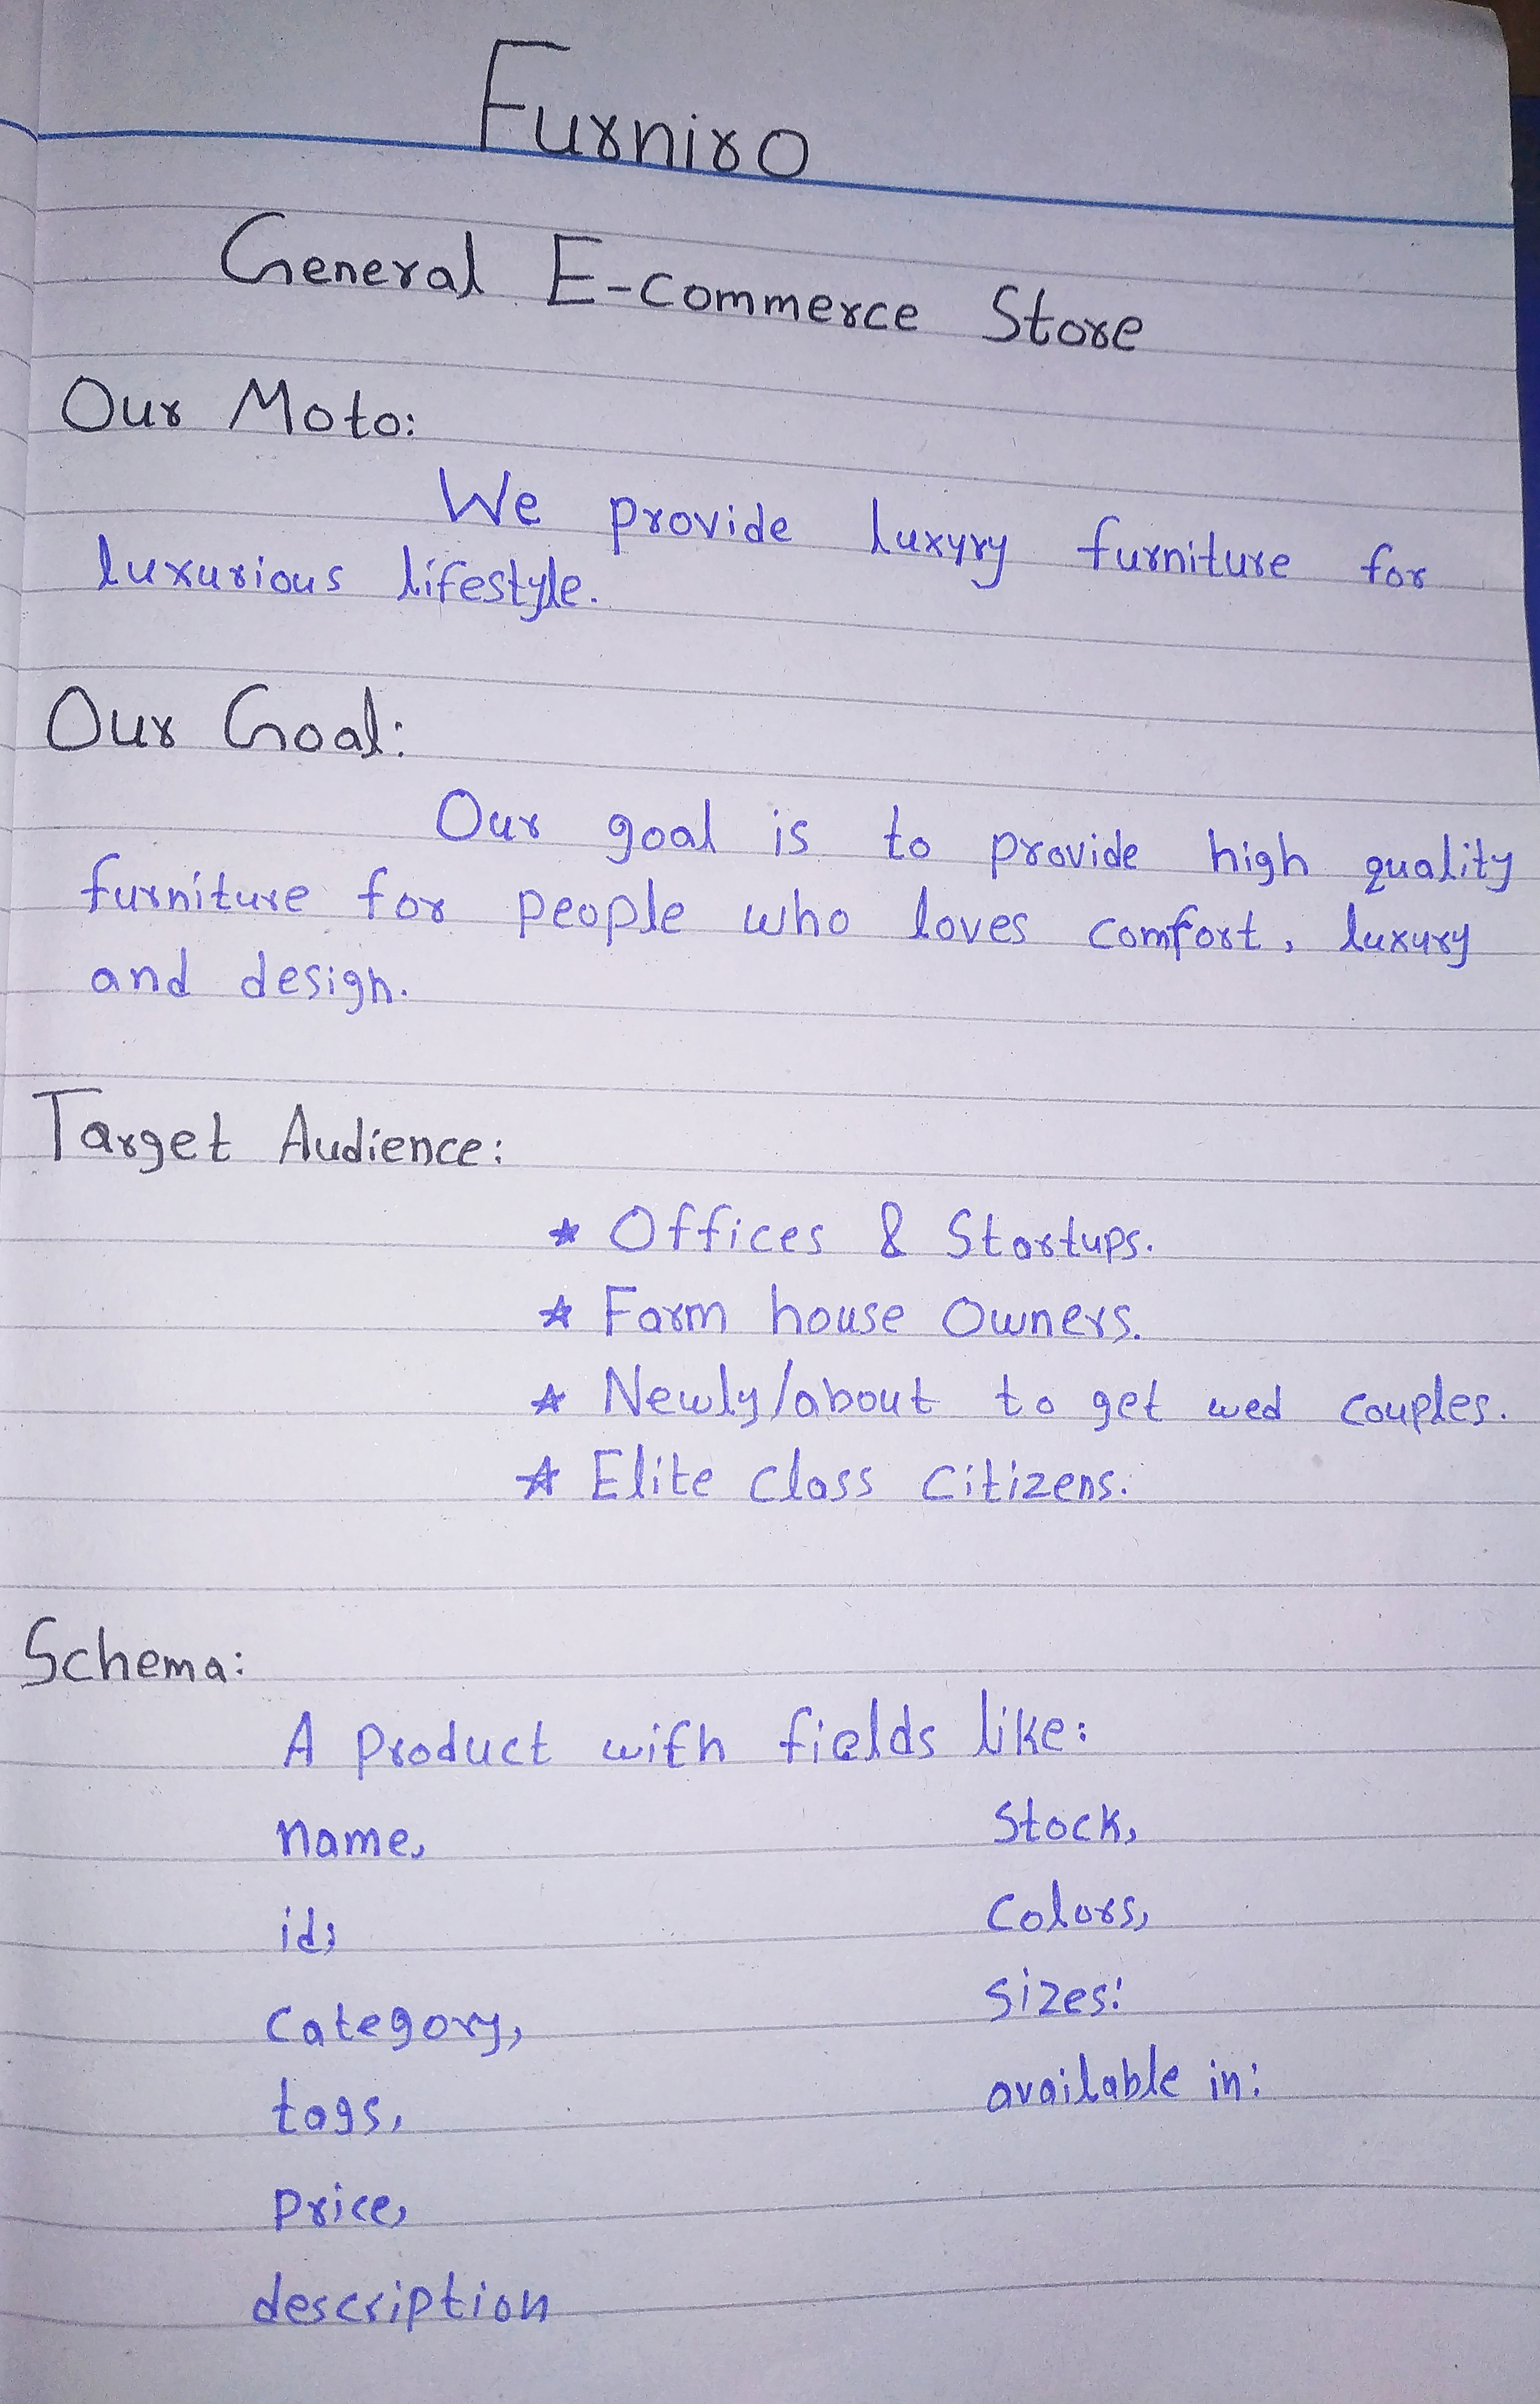 Furniro
General E-commerce Store
Our Moto:
We provide luxyry furniture for
luxurious lifestyle.
Our Goal:
Our goal is to provide high quality
furniture for people who loves comfort, luxury
and design.
Target Audience:
★ Offices & Startups.
★ Farm house Owners.
★ Newly/about to get wed couples.
★ Elite Class Citizens.
Schema:
A Product with fields like:
name,
id,
Category,
tags,
Price,
description
Stock,
Colors,
Sizes:
available in: